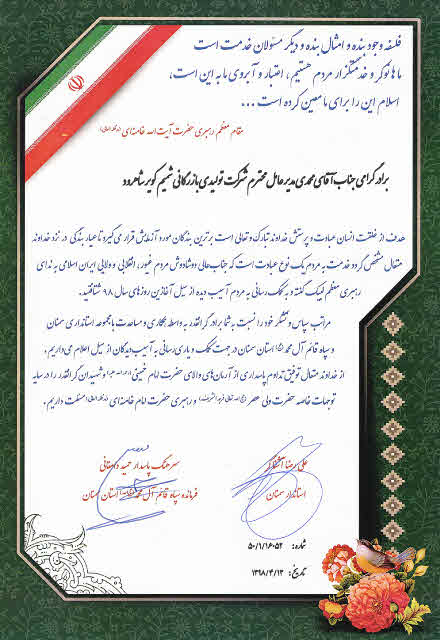 فلسفه وجود بنده و امثال بنده و دیگر مسئولان خدمت است
ما ها نوکر و خدمتگزار مردم هستیم، اعتبار و آبروی ما به این است،
اسلام این را برای ما معین کرده است ...
مقام معظم رهبری حضرت آیت الله خامنه‌ای
برادر گرامی جناب آقای محمدی مدیر عامل محترم شرکت تولیدی بازرگانی شمیم کویر شاهرود
هدف از خلقت انسان عبادت و پرستش خداوند تبارک و تعالی است برترین بندگان مورد آزمایش قرار می گیرد تا عیار بندگی در نزد خداوند
متعال مشخص گردد خدمت به مردم یک نوع عبادت است که جنابعالی دوشادوش مردم غیور، انقلابی و ولایی ایران اسلامی به ندای
رهبری معظم لبیک گفته و به کمک رسانی به مردم آسیب دیده از سیل آغازین روزهای سال ۹۸ شتافتید.
مراتب سپاس و تشکر خود را نسبت به شما برادر گرانقدر به واسطه همکاری و مساعدت با مجموعه استانداری سمنان
و سپاه قائم آل محمد (عج) استان سمنان در جهت کمک و یاری رسانی به آسیب دیدگان از سیل اعلام می داریم.
از خداوند متعال توفیق تداوم پاسداری از آرمان های والای حضرت امام خمینی و شهیدان گرانقدر را در سایه
توجهات خاصه حضرت ولی عصر و رهبری حضرت امام خامنه ای مسئلت داریم.
علی رضا آشناگر
استاندار سمنان
سرهنگ پاسدار حمید دامغانی
فرمانده سپاه قائم آل محمد استان سمنان
شماره: ۵۰/۱/۱۶۰۵۲
تاریخ: ۱۳۹۸/۴/۱۳